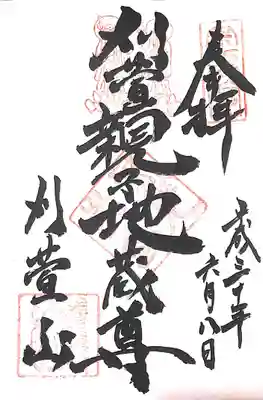 奉拝
平成三十年
六月八日
刈萱親子地蔵尊
刈萱山